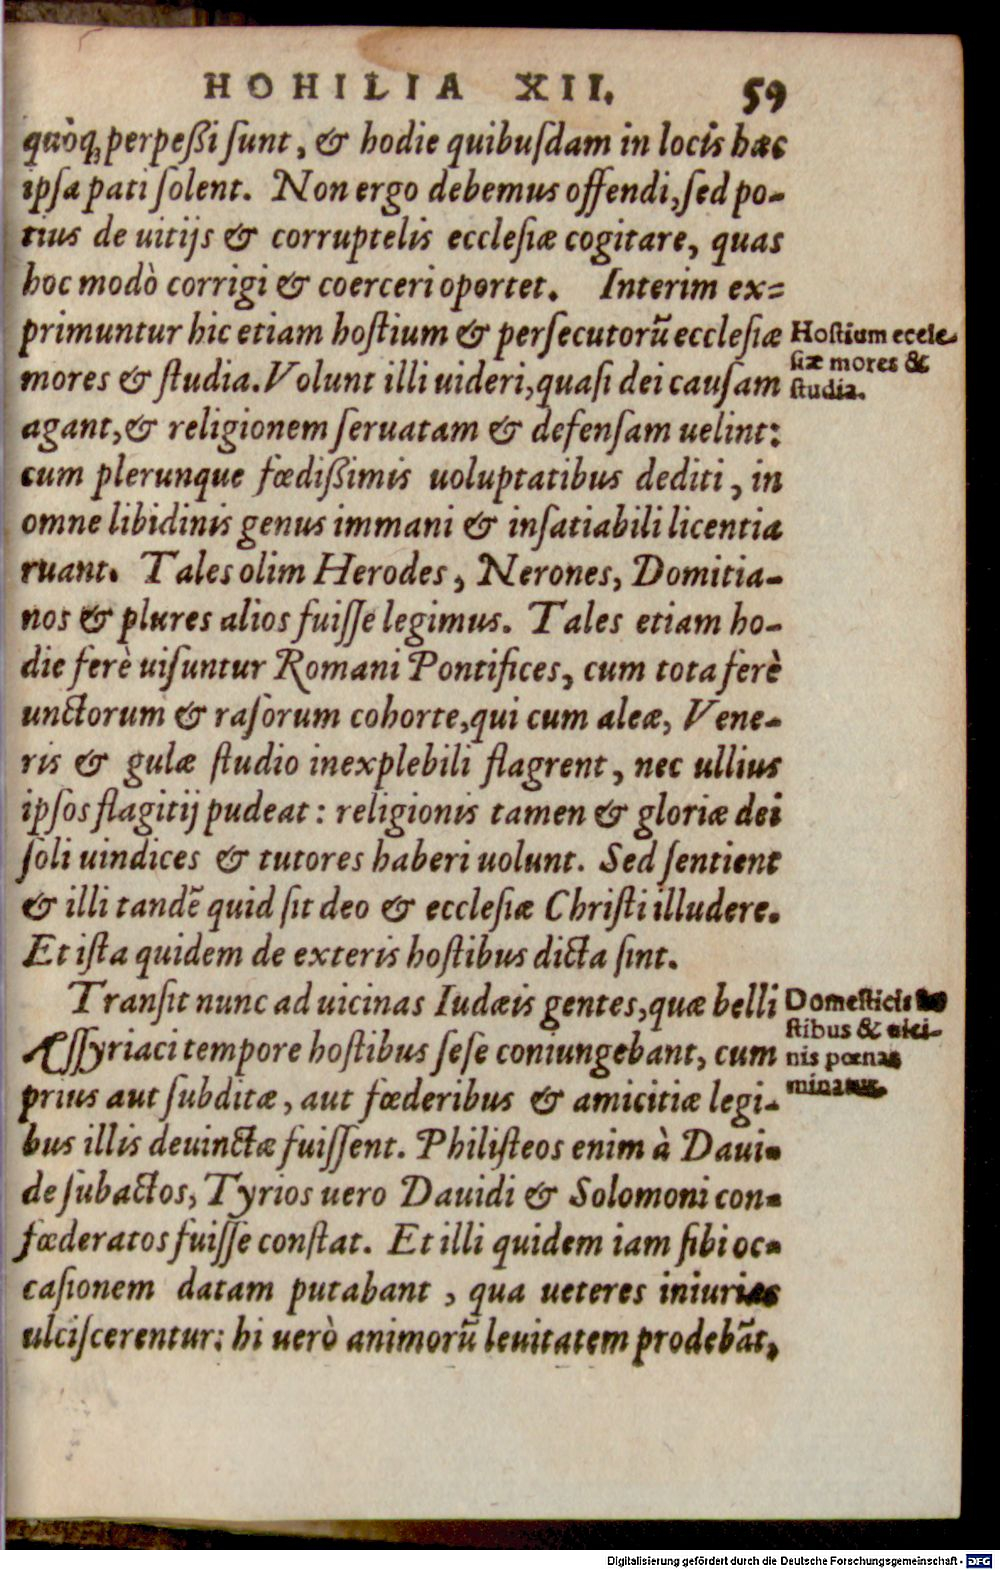 HOHILIA XII. 59
quòq; perpeßi ſunt, & hodie quibuſdam in locis hæc
ipſa pati ſolent. Non ergo debemus offendi, ſed po-
tius de uitijs & corruptelis eccleſiæ cogitare, quas
hoc modò corrigi & coerceri oportet. Interim ex=
primuntur hic etiam hoſtium & perſecutorũ eccleſiæ
mores & ſtudia. Volunt illi uideri, quaſi dei cauſam
agant, & religionem ſeruatam & defenſam uelint:
cum plerunque fœdißimis uoluptatibus dediti, in
omne libidinis genus immani & inſatiabili licentia
ruant. Tales olim Herodes, Nerones, Domitia-
nos & plures alios fuiſſe legimus. Tales etiam ho-
die ferè uiſuntur Romani Pontifices, cum tota ferè
unctorum & raſorum cohorte, qui cum aleæ, Vene-
ris & gulæ ſtudio inexplebili flagrent, nec ullius
ipſos flagitij pudeat: religionis tamen & gloriæ dei
ſoli uindices & tutores haberi uolunt. Sed ſentient
& illi tandẽ quid ſit deo & eccleſiæ Chriſti illudere.
Et iſta quidem de exteris hoſtibus dicta ſint.
Tranſit nunc ad uicinas Iudæis gentes, quæ belli
Aſſyriaci tempore hoſtibus ſeſe coniungebant, cum
prius aut ſubditæ, aut fœderibus & amicitiæ legi-
bus illis deuinctæ fuiſſent. Philiſteos enim à Daui-
de ſubactos, Tyrios uero Dauidi & Solomoni con-
fœderatos fuiſſe conſtat. Et illi quidem iam ſibi oc-
caſionem datam putabant, qua ueteres iniurias
ulciſcerentur: hi uerò animorũ leuitatem prodebãt,
Hoſtium eccle-
ſiæ mores &
ſtudia.
Domeſticis ho
ſtibus & uici-
nis pœnas
minatur.
Digitalisierung gefördert durch die Deutsche Forschungsgemeinschaft - DFG